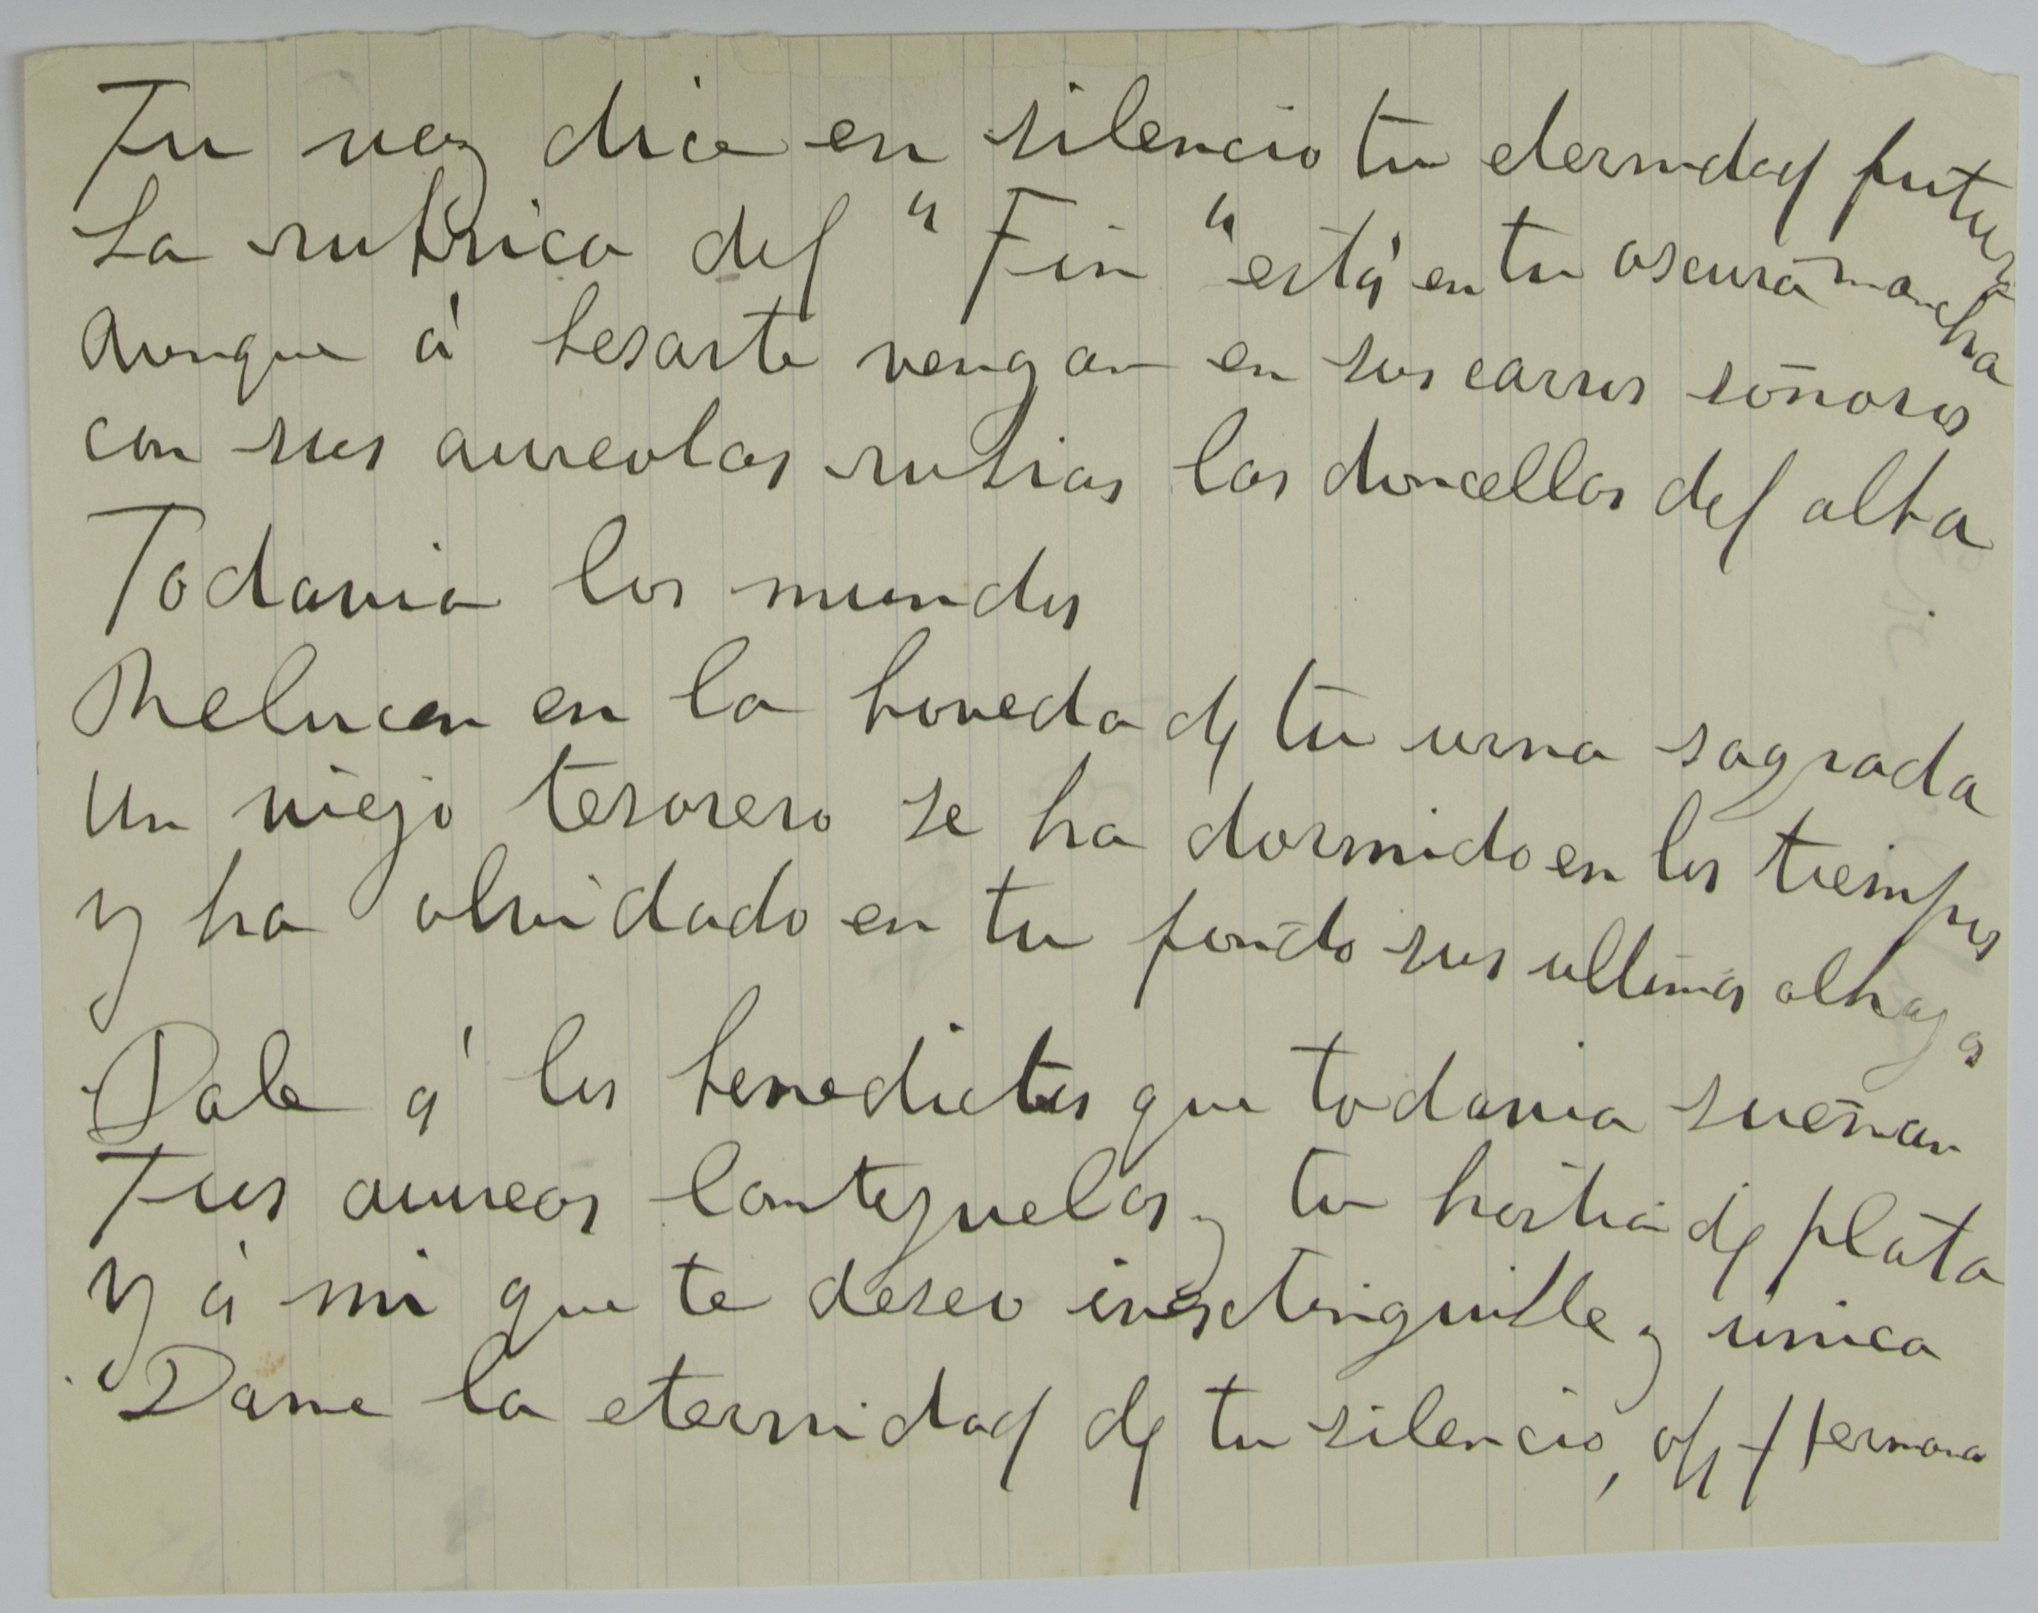 Tu vez dice en silencio tu eternidad futura
La rubrica del "Fin" está en tu oscura mancha
Aunque á besarte vengan en sus carros soñoros
con sus aureolas rubias las doncellas del alba
Todavia los mundos
Relucen en la boveda de tu urna sagrada
Un viejo tesorero se ha dormido en los tiempos
y ha olvidado en tu fondo sus ultimas alhajas
Dale á los benedictos que todavia sueñan
Tus aureas lantejuelas y tu hostia de plata
Y á mi que te deseo inextinguible y única
Dame la eternidad de tu silencio, oh Hermana